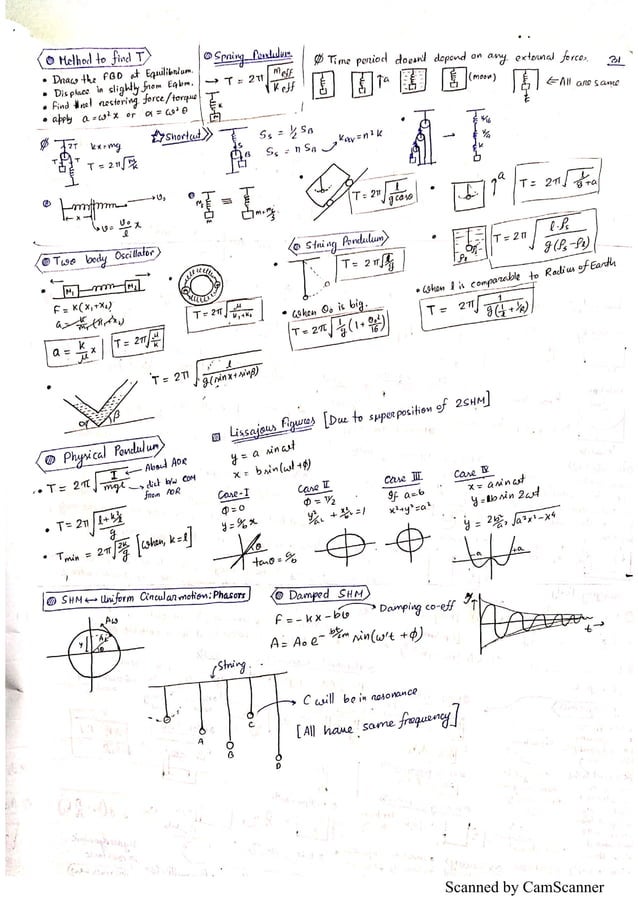 Method to find T
• Draw the FBD at Equilibrium.
• Displace in slightly from Eqbm.
• Find that restoring force/torque
• apply a=ω²x or α=ω²θ
Spring Pendulum
→ T = 2π√(meff/keff)
Time period doesn't depend on any external forces.
a
(moon)
⇐ All are same
2T
T
T
kx=mg
T = 2π√(m/k)
Shortcut
S
B
Ss = ½ SB
Ss = n SB
keqv = n²k
k
T = 2π√(l/g cosα)
a
T = 2π√(l/g+a)
v₀
v = v₀/l x
x
m
m
≡
T = 2π√(l·ρs/g(ρs-ρl))
Two body Oscillator
M₁
M₂
F = K(x₁+x₂)
a = k/μ x
T = 2π√(μ/k)
T = 2π√(μ/k₁+k₂)
String Pendulum
T = 2π√(l/g)
• When θ₀ is big.
T = 2π√(l/g)(1+θ₀²/16)
• When l is comparable to Radius of Earth
T = 2π√(1/g(1/l+1/R))
α
β
T = 2π√(l/g(sinα+sinβ))
Physical Pendulum
• T = 2π√(I/mgl)
About AOR
dist b/w COM
from AOR
• T = 2π√(l+k²/l/g)
Tmin = 2π√(2k/g) [when, k=l]
Lissajous Figures [Due to superposition of 2SHM]
y = a sinωt
x = b sin(ωt+ϕ)
Case-I
ϕ=0
y = a/b x
θ
tanθ = a/b
Case II
ϕ = π/2
y²/a² + x²/b² = 1
Case III
If a=b
x²+y²=a²
Case IV
x = a sinωt
y = b sin 2ωt
-a
+a
SHM ↔ Uniform Circular motion: Phasors
Aω
y
θ
Damped SHM
F = -kx-bv → Damping co-eff
A = A₀e^(-bt/2m) sin(ω't + ϕ)
t→
String
A
B
C
D
→ C will be in resonance
[All have same frequency]
Scanned by CamScanner